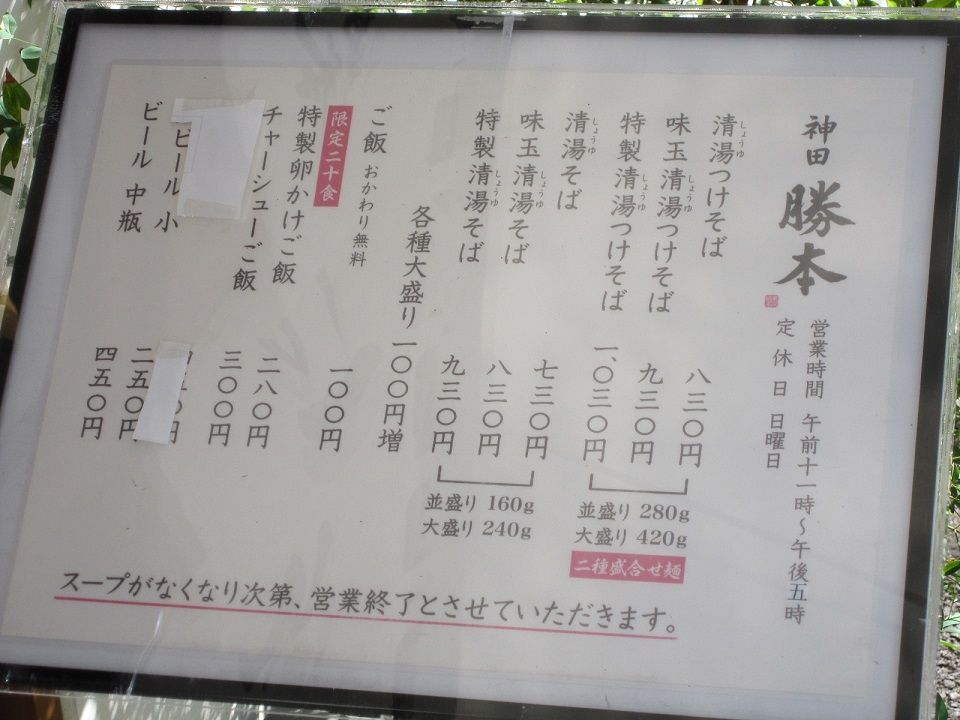 神田 勝本
営業時間 午前十一時～午後五時
定休日 日曜日
清湯つけそば 八三〇円
しょうゆ
味玉清湯つけそば 九三〇円
しょうゆ
特製清湯つけそば 一、〇三〇円
しょうゆ
並盛り 280g
大盛り 420g
二種盛合せ麺
清湯そば 七三〇円
しょうゆ
味玉清湯そば 八三〇円
しょうゆ
特製清湯そば 九三〇円
しょうゆ
並盛り 160g
大盛り 240g
各種大盛り 一〇〇円増
ご飯 おかわり無料 一〇〇円
限定二十食
特製卵かけご飯 二八〇円
チャーシューご飯 三〇〇円
ビール 小 二五〇円
ビール 中瓶 四五〇円
スープがなくなり次第、営業終了とさせていただきます。